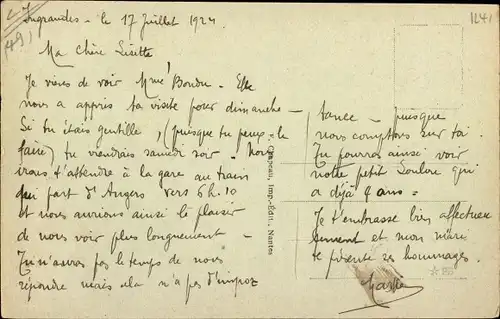 Ingrandes - le 17 Juillet 1924
(49)
Ma Chère Lisette
Je viens de voir Mme Bondu - Elle
nous a appris ta visite pour dimanche -
Si tu étais gentille, (puisque tu peux le
faire) tu viendrais samedi soir - Nous
irons t'attendre à la gare au train
qui part d'Angers vers 6h.10
et nous aurions ainsi le plaisir
de nous voir plus longuement -
Tu n'auras pas le temps de nous
répondre mais cela n'a pas d'impor
tance - puisque
nous comptons sur toi.
Tu pourras ainsi voir
notre petit qui
a déjà 4 ans =
Je t'embrasse bien affectueu
sement et mon mari
te présente ses hommages.
Chapeau, Imp.-Édit. - Nantes